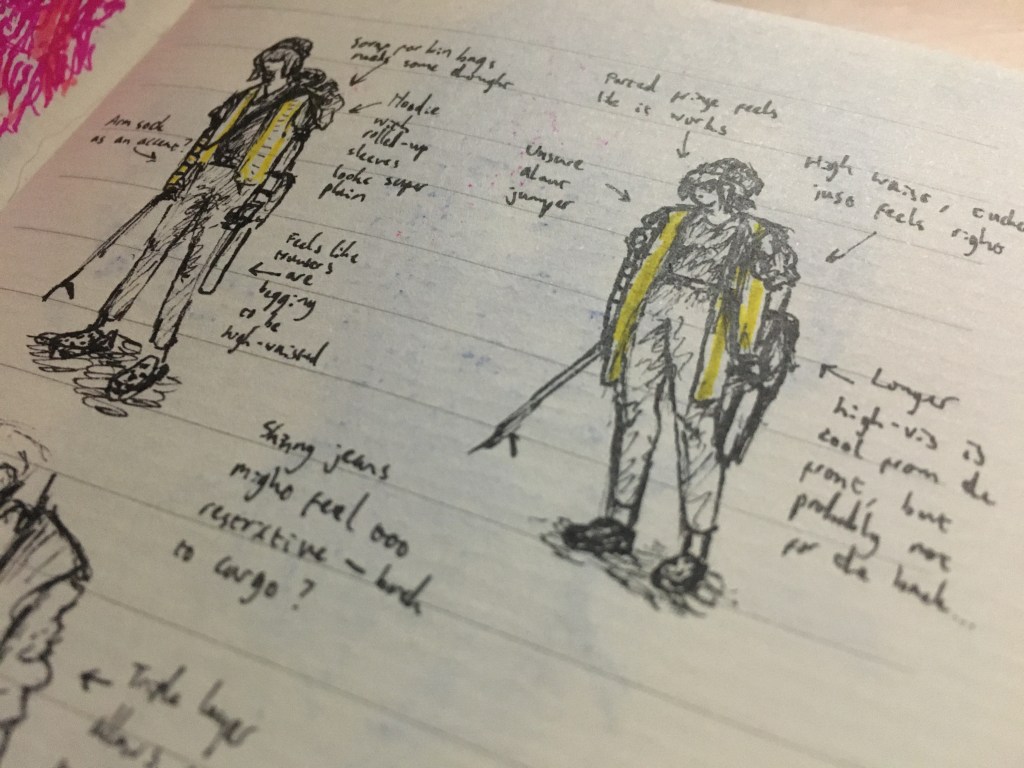 Strap for bin bags
needs some thought
Hoodie
with
rolled-up
sleeves
looks super
plain
Arm sock
as an accent?
Feels like
trousers
are
begging
to be
high-waisted
Parted fringe feels
like it
works
Unsure
about
jumper
High waist,
just feels right
Longer
high-vis is
cool from the
front, but
probably not
for the back...
Skinny jeans
might feel too
restrictive - back
to cargo?
Triple layer
allows